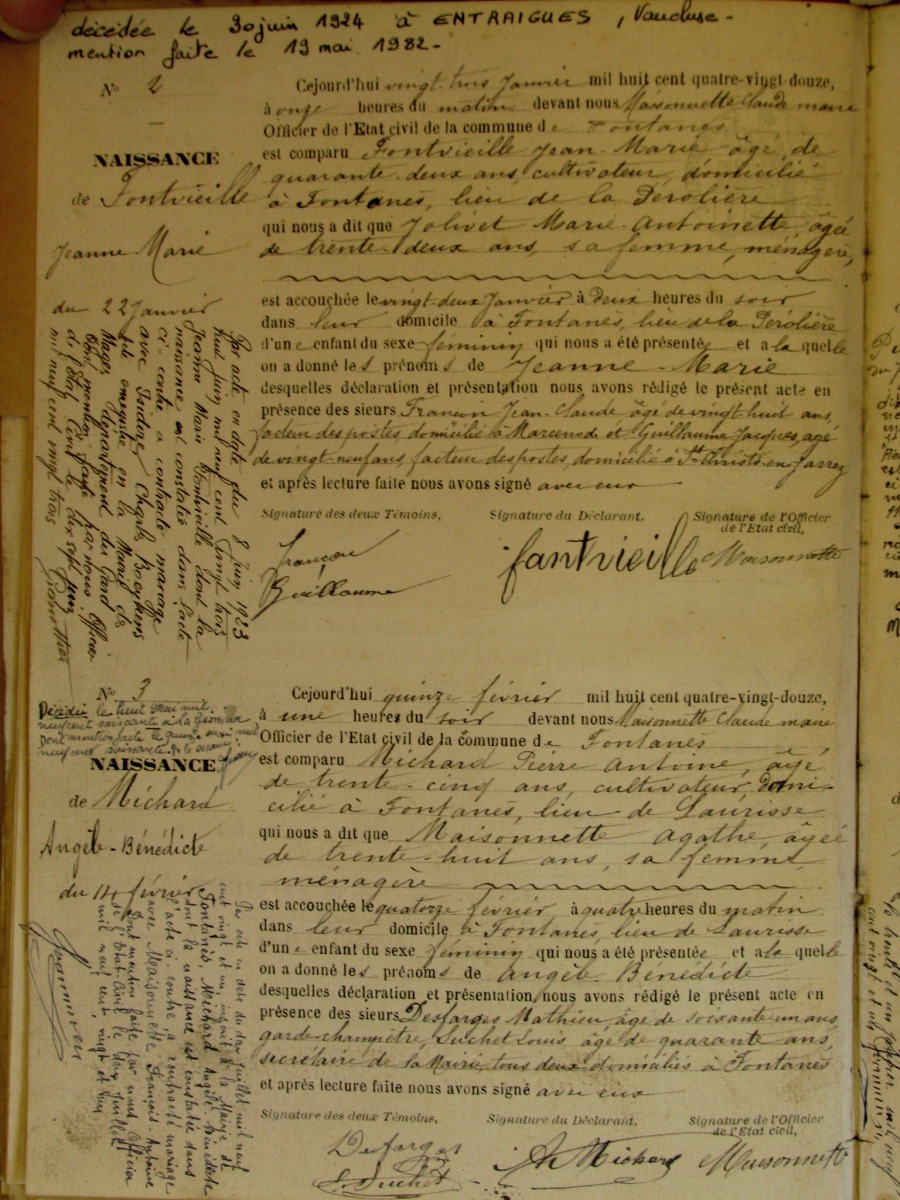 décédée le 30 juin 1924 à ENTRAIGUES, Vaucluse -
mention faite le 19 mai 1982 -
N° 2
NAISSANCE
de Fontvieille
Jeanne Marie
du 22 Janvier
Par acte en date du 8 Juin 1923
huit juin mil neuf cent vingt trois
Jeanne Marie Fontvieille dont la
naissance est constatée dans l'acte
ci-contre a contracté mariage
avec Isidore Charles
acte enregistré en la Mairie de
Mages, département du Gard
Dont mention faite par nous Officier
de l'Etat Civil le dix sept juin
mil neuf cent vingt trois
Cejourd'hui vingt-trois Janvier mil huit cent quatre-vingt-douze,
à onze heures du matin devant nous Maisonnette Claude maire
Officier de l'Etat civil de la commune de Fontanès
est comparu Fontvieille Jean-Marie âgé de
quarante-deux ans, cultivateur, domicilié
à Fontanès, lieu de la Pérolière
qui nous a dit que Jolivet Marie-Antoinette, âgée
de trente-deux ans, sa femme, ménagère,
est accouchée le vingt-deux Janvier à deux heures du soir
dans leur domicile à Fontanès, lieu de la Pérolière
d'un e enfant du sexe féminin qui nous a été présentée et a la quelle
on a donné le s prénom s de Jeanne-Marie
desquelles déclaration et présentation nous avons rédigé le présent acte en
présence des sieurs Françon Jean-Claude âgé de vingt huit ans,
facteur des postes, domicilié à Marcenod et Guillaume Jacques, âgé
de vingt-neuf ans, facteur des postes, domicilié à St Christo-en-Jarrez
et après lecture faite nous avons signé avec eux
Signature des deux Témoins, Signature du Déclarant, Signature de l'Officier
de l'Etat civil,
Françon
Guillaume
fantvieille
Maisonnette
N° 3
Décédée le huit Mai mil
neuf cent soixante à la
Dont mention faite le quinze mai mil
neuf cent soixante. Le
NAISSANCE
de Michard
Angèle-Bénédicte
du 14 février
Par acte en date du deux juillet mil neuf
cent vingt et un, inscrit à la Mairie de
Fontanès, Michard Angèle-Bénédicte
dont la naissance est constatée dans
l'acte ci-contre a contracté mariage
avec Maisonnette François-Antoine
Dont mention faite par nous Officier
de l'Etat-Civil le deux juillet
mil neuf cent vingt et un
Cejourd'hui quinze février mil huit cent quatre-vingt-douze,
à une heure du soir devant nous Maisonnette Claude maire
Officier de l'Etat civil de la commune de Fontanès
est comparu Michard Pierre Antoine, âgé
de trente-cinq ans, cultivateur, domi-
cilié à Fontanès, lieu de Laurisse
qui nous a dit que Maisonnette Agathe, âgée
de trente-huit ans, sa femme
ménagère
est accouchée le quatorze février à quatre heures du matin
dans leur domicile à Fontanès, lieu de Laurisse
d'un e enfant du sexe féminin qui nous a été présentée et a la quelle
on a donné le s prénoms de Angèle Bénédicte
desquelles déclaration et présentation nous avons rédigé le présent acte en
présence des sieurs Desfarges Mathieu, âgé de soixante-un ans,
garde-champêtre, Suchet Louis, âgé de quarante ans,
secrétaire de la Mairie, tous deux domiciliés à Fontanès
et après lecture faite nous avons signé avec eux
Signature des deux Témoins, Signature du Déclarant, Signature de l'Officier
de l'Etat civil,
Desfarges
L. Suchet
Michard
Maisonnette